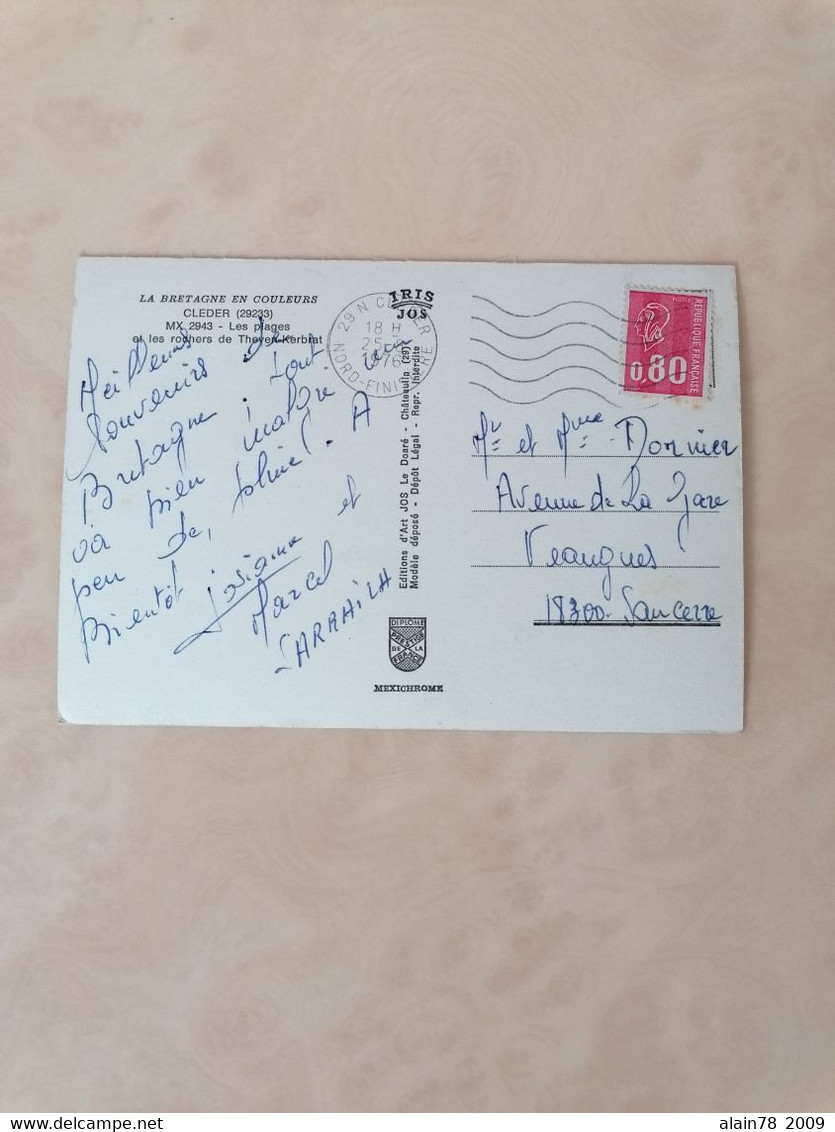 LA BRETAGNE EN COULEURS
CLEDER (29233)
MX 2943 - Les plages
et les rochers de Theven-Kerbrat
Meilleurs
souvenirs de
Bretagne, tout
va bien malgré un
peu de pluie. A
bientôt
Josiane et
Marcel
SARRAILH
IRIS
JOS
29 N CLEDER
18 H
25-
1976
NORD-FINISTERE
Editions d'Art JOS Le Doaré - Châteaulin (29)
Modèle déposé - Dépôt Légal - Repr. Interdite
DIPLOME
PRESTIGE
DE LA
FRANCE
MEXICHROME
POSTES
REPUBLIQUE FRANÇAISE
0,80
Mr et Mme Dornier
Avenue de La Gare
Veaugues
18300 - Sancerre
alain78_2009